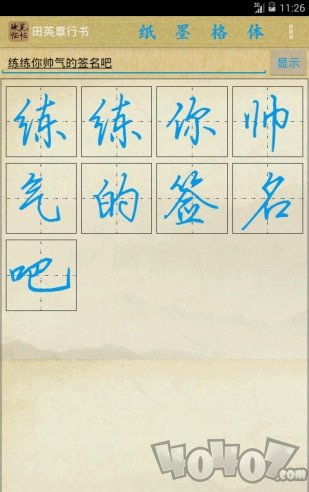 3G 11:26
田英章行书 纸 墨 格 体
练练你帅气的签名吧 显示
练 练 你 帅
气 的 签 名
吧
40407.com